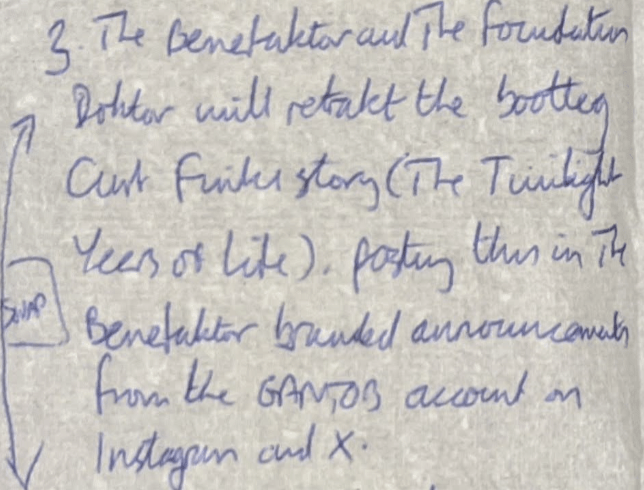 3. The Benefaktor and The Foundation
Doktor will retrakt the bootleg
Curt Finks story (The Twilight
Years of Life). posting this in The
SWAP
Benefaktor branded announcements
from the GANTOB account on
Instagram and X.